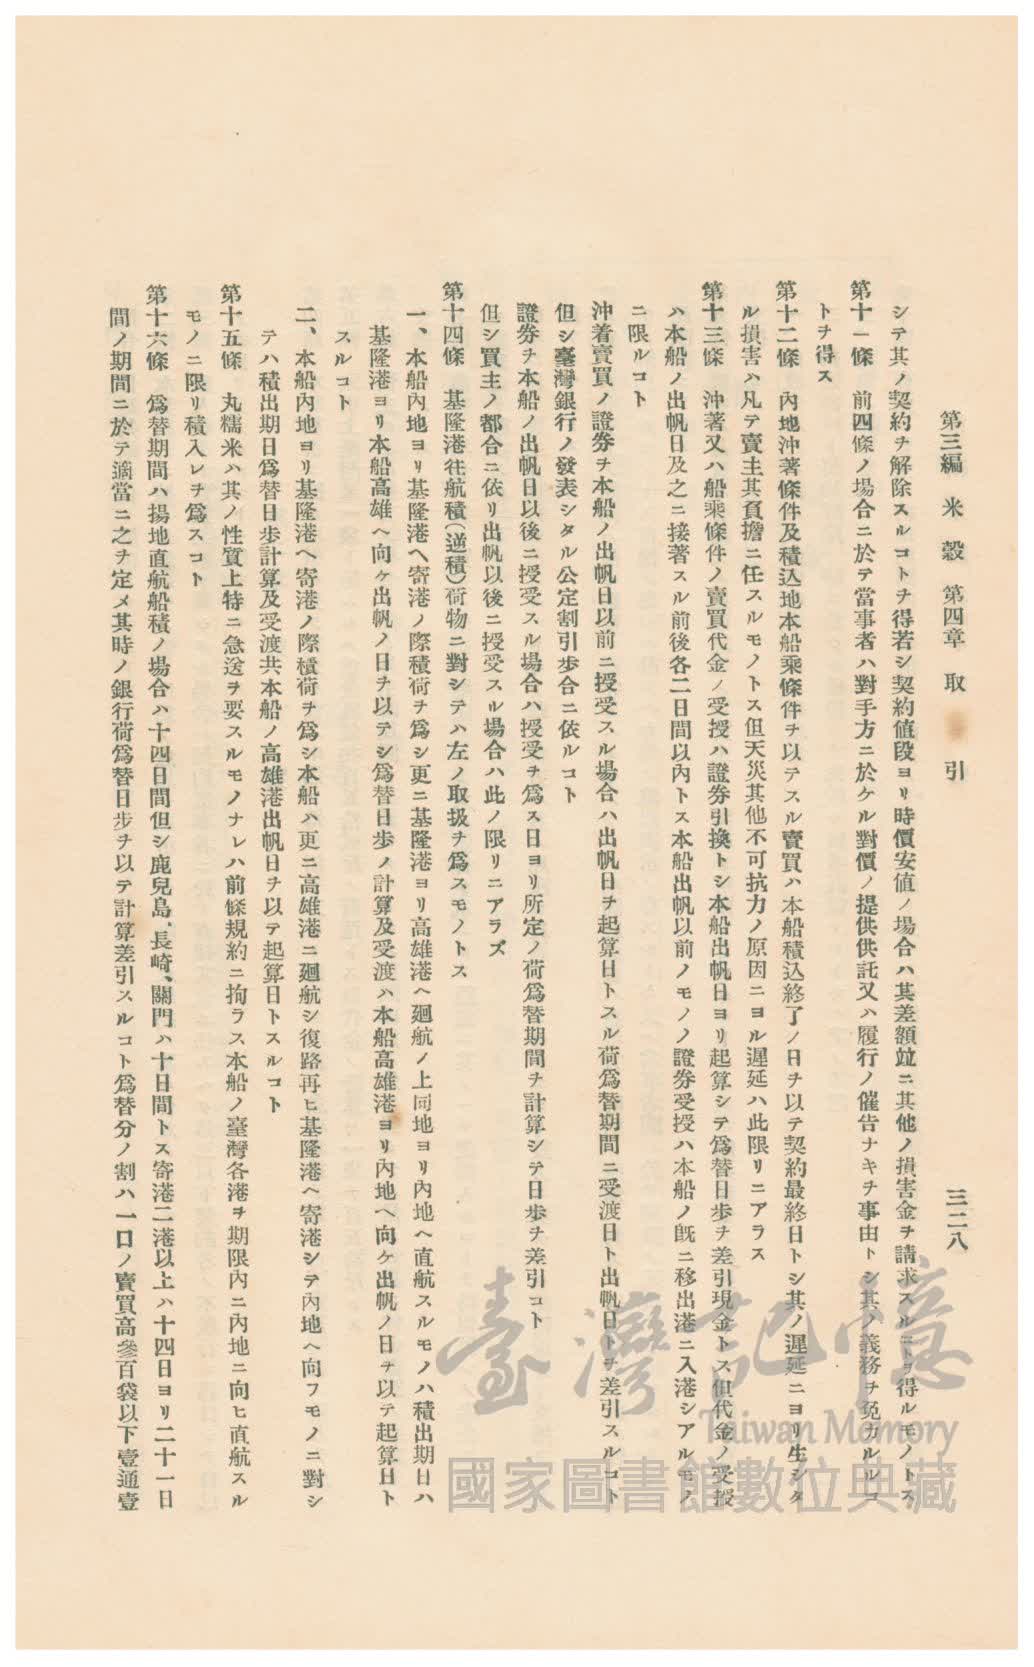 第三編　米　穀　第四章　取　引
三二八
シテ其ノ契約ヲ解除スルコトヲ得若シ契約値段ヨリ時價安値ノ場合ハ其差額竝ニ其他ノ損害金ヲ請求スルコトヲ得ルモノトス
第十一條　前四條ノ場合ニ於テ當事者ハ對手方ニ於ケル對價ノ提供供託又ハ履行ノ催告ナキヲ事由トシ其ノ義務ヲ免カルルコ
トヲ得ス
第十二條　內地沖著條件及積込地本船乘條件ヲ以テスル賣買ハ本船積込終了ノ日ヲ以テ契約最終日トシ其ノ遲延ニヨリ生シタ
ル損害ハ凡テ賣主其負擔ニ任スルモノトス但天災其他不可抗力ノ原因ニヨル遲延ハ此限リニアラス
第十三條　沖著又ハ船乘條件ノ賣買代金ノ受授ハ證券引換トシ本船出帆日ヨリ起算シテ爲替日步ヲ差引現金トス但代金ノ受授
ハ本船ノ出帆日及之ニ接著スル前後各二日間以內トス本船出帆以前ノモノノ證券受授ハ本船ノ旣ニ移出港ニ入港シアルモノ
ニ限ルコト
沖着賣買ノ證券ヲ本船ノ出帆日以前ニ授受スル場合ハ出帆日ヲ起算日トスル荷爲替期間ニ受渡日ト出帆日トヲ差引スルコト
但シ臺灣銀行ノ發表シタル公定割引步合ニ依ルコト
證券ヲ本船ノ出帆日以後ニ授受スル場合ハ授受ヲ爲ス日ヨリ所定ノ荷爲替期間ヲ計算シテ日步ヲ差引コト
但シ買主ノ都合ニ依リ出帆以後ニ授受スル場合ハ此ノ限リニアラズ
第十四條　基隆港往航積（逆積）荷物ニ對シテハ左ノ取扱ヲ爲スモノトス
一、本船內地ヨリ基隆港ヘ寄港ノ際積荷ヲ爲シ更ニ基隆港ヨリ高雄港ヘ廻航ノ上同地ヨリ內地ヘ直航スルモノハ積出期日ハ
基隆港ヨリ本船高雄ヘ向ケ出帆ノ日ヲ以テシ爲替日步ノ計算及受渡ハ本船高雄港ヨリ內地ヘ向ケ出帆ノ日ヲ以テ起算日ト
スルコト
二、本船內地ヨリ基隆港ヘ寄港ノ際積荷ヲ爲シ本船ハ更ニ高雄港ニ廻航シ復路再ヒ基隆港ヘ寄港シテ內地ヘ向フモノニ對シ
テハ積出期日爲替日步計算及受渡共本船ノ高雄港出帆日ヲ以テ起算日トスルコト
第十五條　丸糯米ハ其ノ性質上特ニ急送ヲ要スルモノナレハ前條規約ニ拘ラス本船ノ臺灣各港ヲ期限內ニ內地ニ向ヒ直航スル
モノニ限リ積入レヲ爲スコト
第十六條　爲替期間ハ揚地直航船積ノ場合ハ十四日間但シ鹿兒島、長崎、關門ハ十日間トス寄港二港以上ハ十四日ヨリ二十一日
間ノ期間ニ於テ適當ニ之ヲ定メ其時ノ銀行荷爲替日步ヲ以テ計算差引スルコト爲替分ノ割ハ一口ノ賣買高參百袋以下壹通壹
臺灣記憶
Taiwan Memory
國家圖書館數位典藏